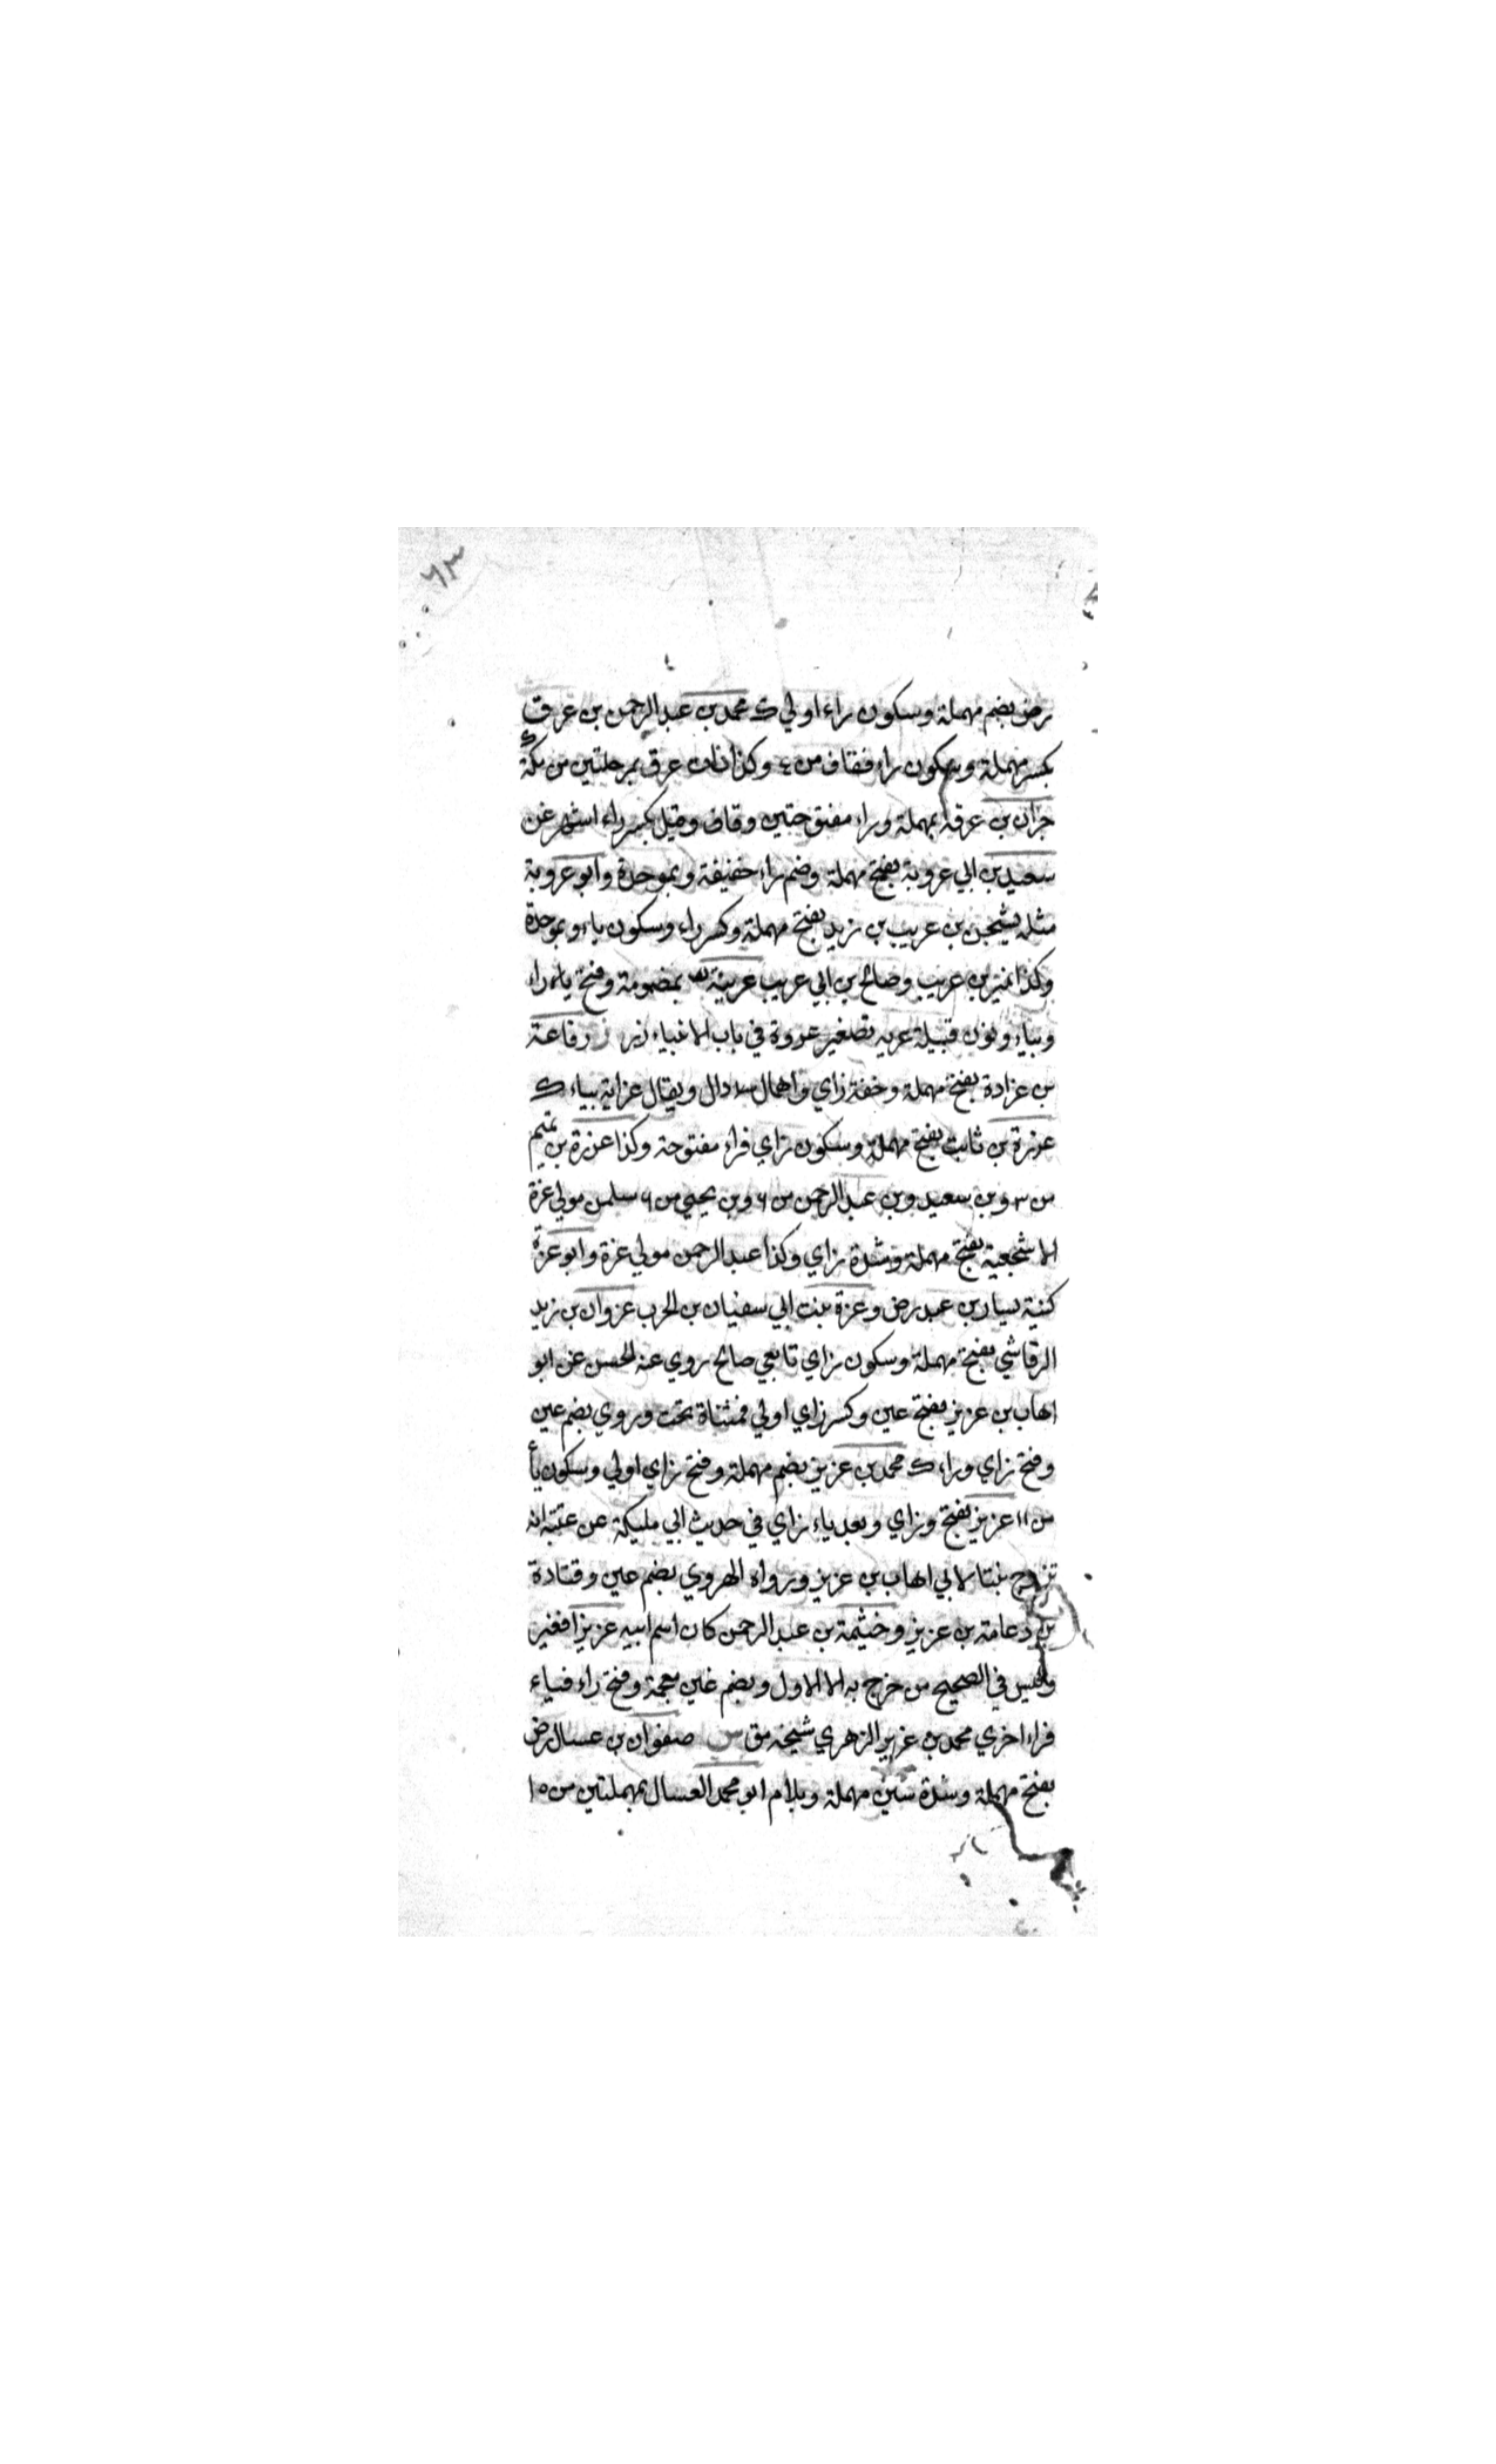 ٦٣
رض بضم مهملة وسكون راء اولي ك محمد بن عبد الرحمن بن عرق
بكسر مهملة وسكون راء فقاف من ٤ وكذا ذات عرق بمرحلتين من مكة
بن عرقة بمهملة وراء مفتوحتين وقاف وقيل بكسر راء اشهر غن
سعيد بن ابي عروبة بفتح مهملة وضم راء خفيفة وبموحدة وابو عروبة
مثله يشجن بن عريب بن زيد بفتح مهملة وكسر راء وسكون ياء وبموحدة
وكذا نمير بن عريب وصالح بن ابي عريب عرينة بمضمومة وفتح راء
وبياء ونون قبيلة عريه تصغير عروة في باب الانبياء رفاعة
بن عزادة بفتح مهملة وخفة زاي واهمال دال ويقال عزاية بياء ك
عزرة بن ثابت بفتح مهملة وسكون زاي فراء مفتوحة وكذا عزرة بن تميم
من ٣ وبن سعيد وبن عبد الرحمن من ٦ وبن يحيي من ٦ سلمن مولي عزة
الاشجعية بفتح مهملة وشدة زاي وكذا عبد الرحمن مولي عزة وابو عزة
كنية يسار بن عبد رض وعزة بنت ابي سفيان بن الحرب عزوان بن زيد
الرقاشي بفتح مهملة وسكون زاي تابعي صالح روي عنه الحسن غن ابو
اهاب بن عزيز بفتح عين وكسر زاي اولي فمثناة تحت وروي بضم عين
وفتح زاي وراء ك محمد بن عزيز بضم مهملة وفتح زاي اولي وسكون يأ
من ١١ عزيز بفتح وزاي وبعد ياء زاي في حديث ابي مليكة عن عتبة انه
تزوج بنتا لابي اهاب بن عزيز ورواه الهروي بضم عين وقتادة
بن دعامة بن عزيز وخيثمة بن عبد الرحمن كان اسم ابيه عزيزا فغير
وليس في الصحيح من خرج به الا الاول وبضم غين معجمة وفتح راء فياء
فراء اخري محمد بن غرير الزهري شيخه مق س صفوان بن عسال رض
بفتح مهملة وشدة سين مهملة وبلام ابو محمد العسال بمهملتين من ١٥